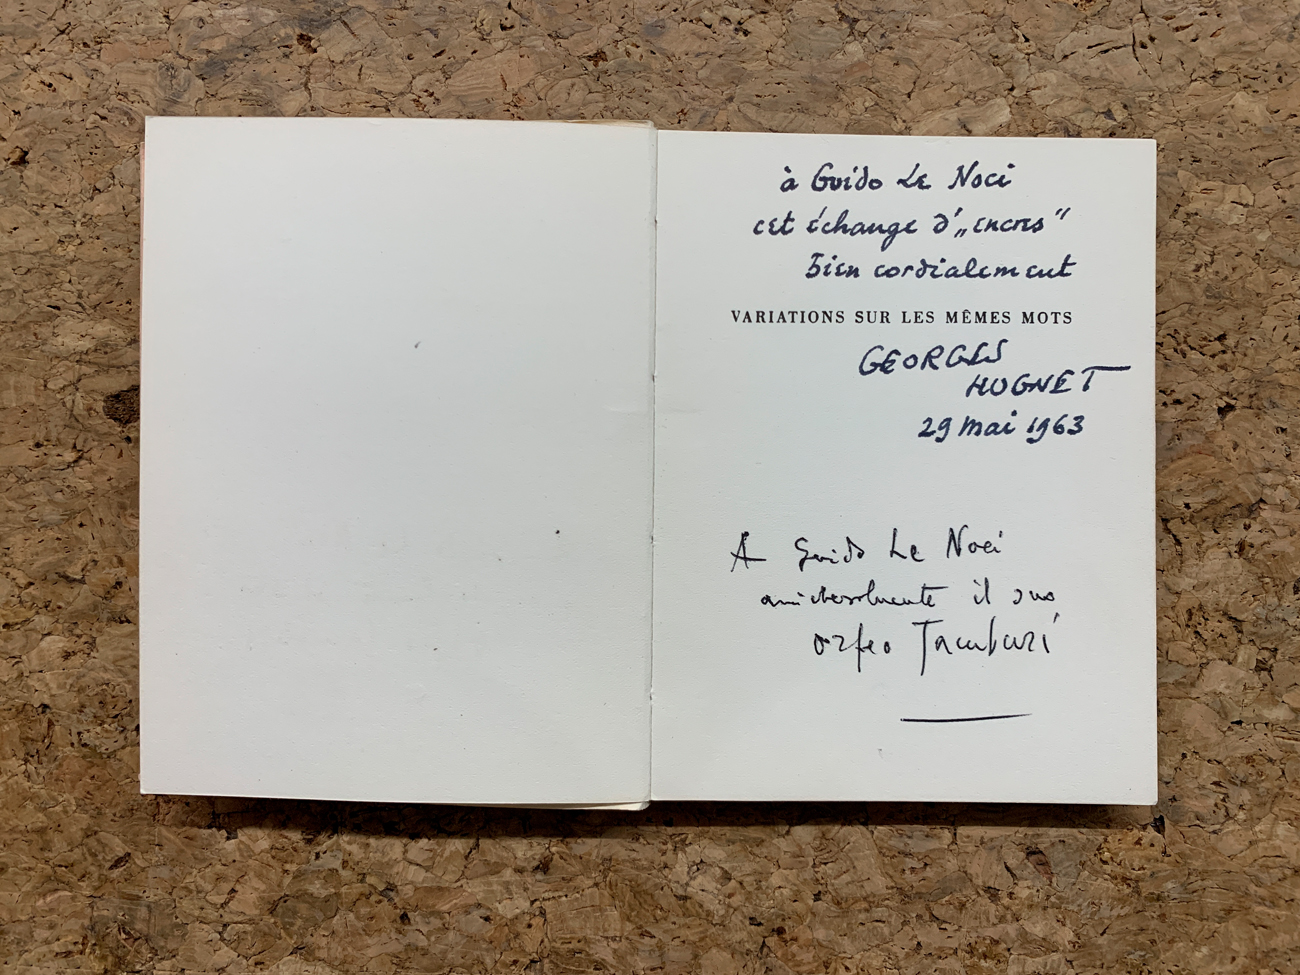 à Guido Le Noci
cet échange d'„encres”
bien cordialement
VARIATIONS SUR LES MÊMES MOTS
GEORGES
HUGNET
29 mai 1963
A Guido Le Noci
amichevolmente il suo
Orfeo Tamburi